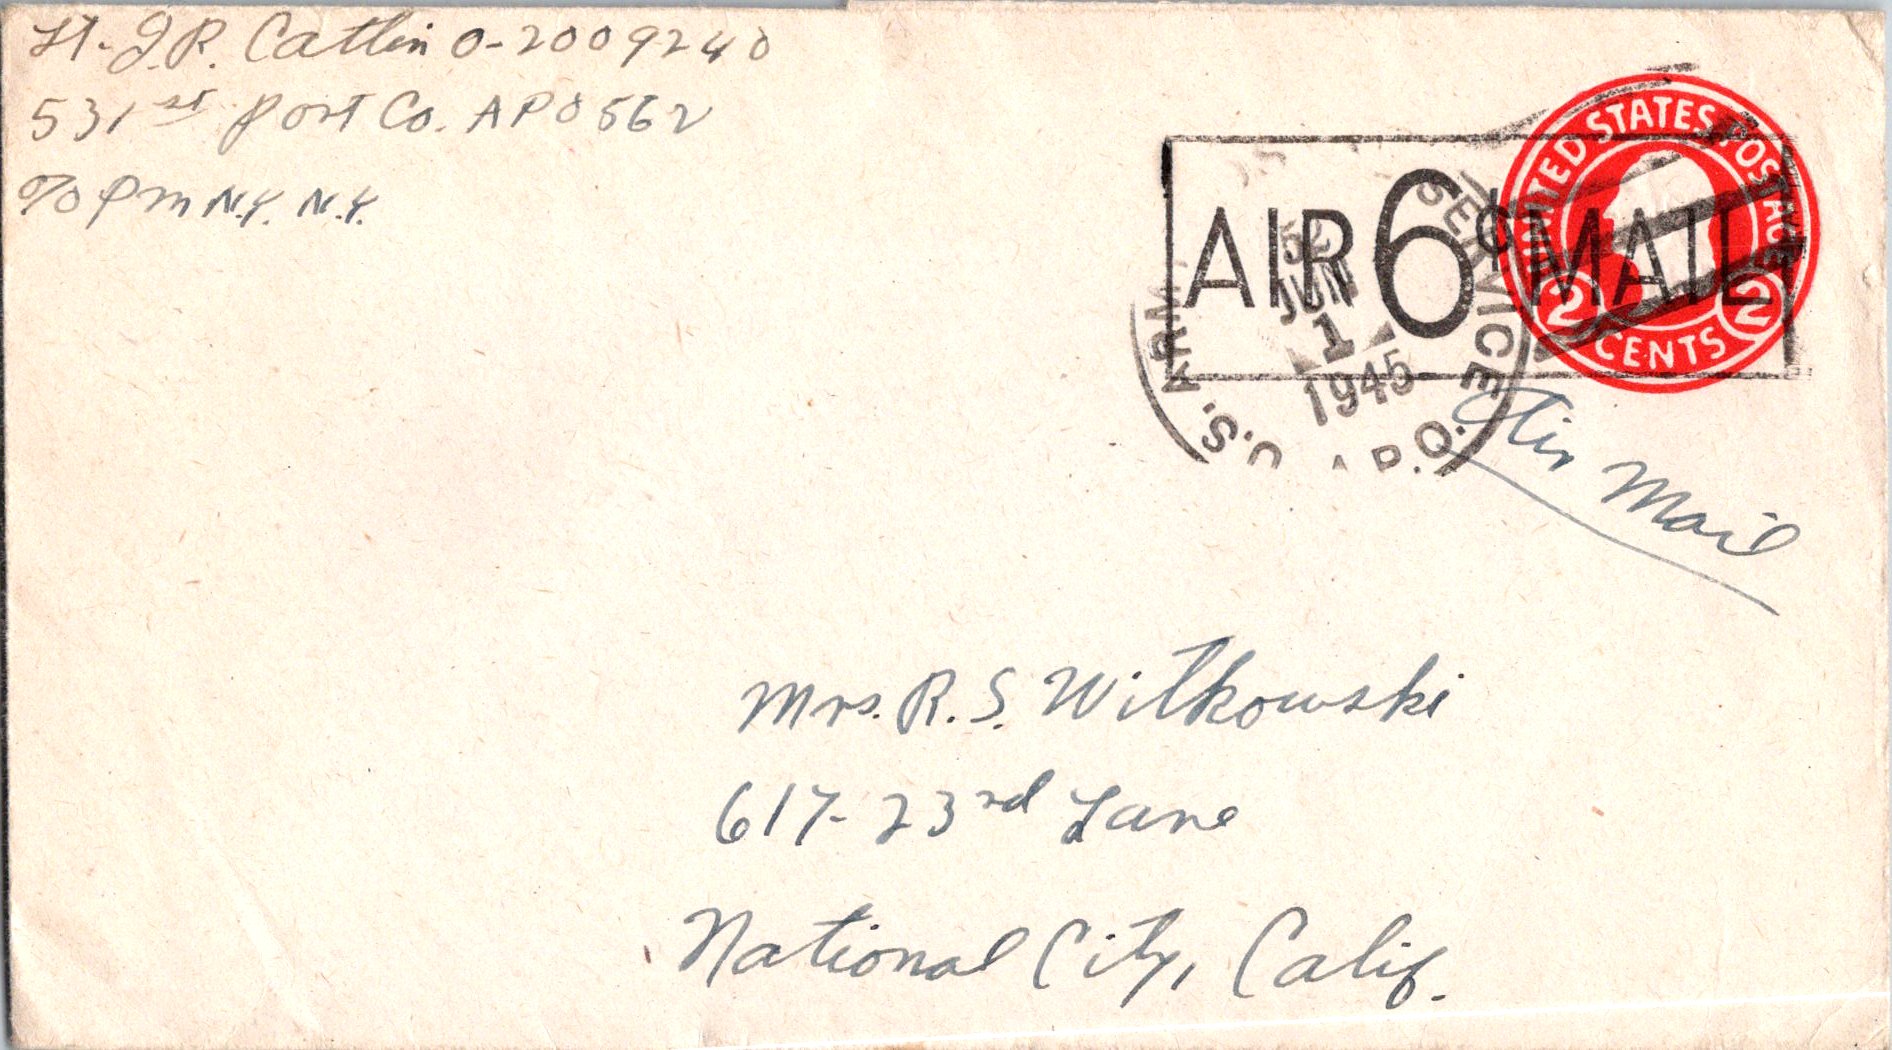 Lt. J.R. Catlin O-2009240
531st Port Co. APO 562
c/o PM N.Y. N.Y.
UNITED STATES POSTAGE
2 CENTS 2
AIR 6¢ MAIL
U.S. ARMY
A.P.O.
SERVICE
JUN
1
1945
Air Mail
Mrs. R. S. Witkowski
617-23rd Lane
National City, Calif.